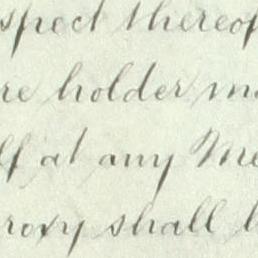 spect thereof
re holder ma
lf at any Me
roxy shall b